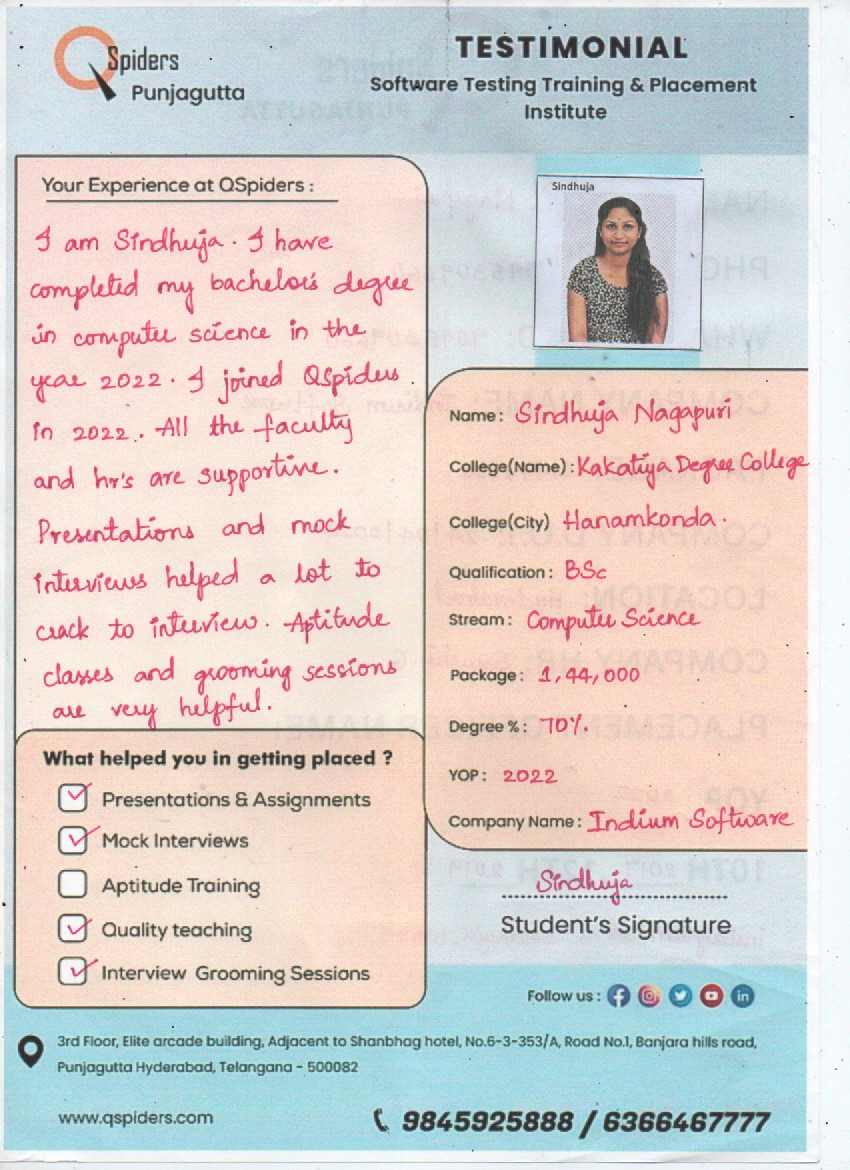 QSpiders
Punjagutta
TESTIMONIAL
Software Testing Training & Placement
Institute
Your Experience at QSpiders :
I am Sindhuja. I have
completed my bachelor's degree
in computer science in the
year 2022. I joined QSpiders
in 2022. All the faculty
and hr's are supportive.
Presentations and mock
interviews helped a lot to
crack to interview. Aptitude
classes and grooming sessions
are very helpful.
What helped you in getting placed ?
Presentations & Assignments
Mock Interviews
Aptitude Training
Quality teaching
Interview Grooming Sessions
Sindhuja
Name : Sindhuja Nagapuri
College(Name) : Kakatiya Degree College
College(City) Hanamkonda.
Qualification : BSc
Stream : Computer Science
Package : 1,44,000
Degree % : 70%.
YOP : 2022
Company Name : Indium Software
Sindhuja
Student's Signature
Follow us :
3rd Floor, Elite arcade building, Adjacent to Shanbhag hotel, No.6-3-353/A, Road No.1, Banjara hills road,
Punjagutta Hyderabad, Telangana - 500082
www.qspiders.com
9845925888 / 6366467777